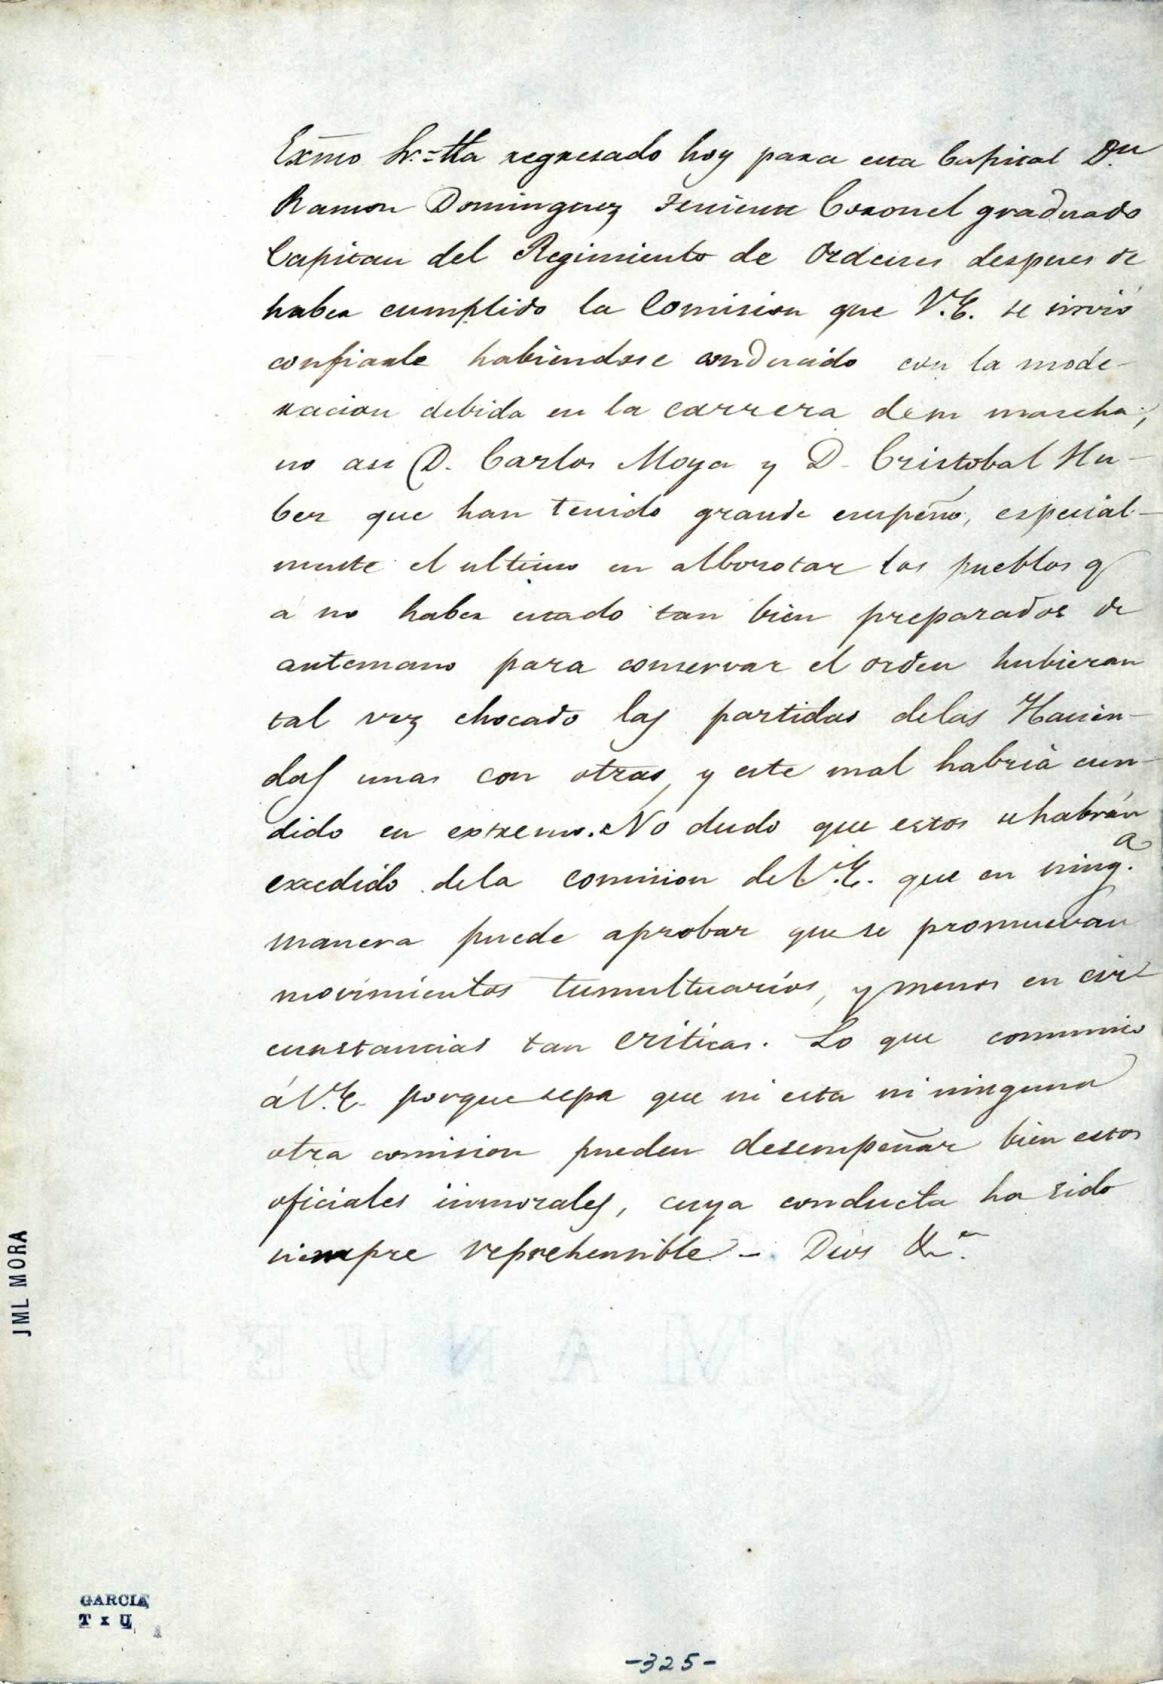 Exmo Sr.=Ha regresado hoy para esta Capital Dn
Ramon Dominguez Teniente Coronel graduado
Capitan del Regimiento de Ordenes despues de
haber cumplido la Comision que V.E. se sirvió
confiarle habiendose conducido con la mode-
racion debida en la carrera desu marcha;
no asi D. Carlos Moya y D. Cristobal Hu-
ber que han tenido grande empeño, especial-
mente el ultimo en alborotar los pueblos q
á no haber estado tan bien preparados de
antemano para conservar el orden hubieran
tal vez chocado las partidas delas Hacien-
das unas con otras, y este mal habria cun-
dido en extremo. No dudo que estos se habrán
excedido dela comision de V.E. que en ning.a
manera puede aprobar que se promuevan
movimientos tumultuarios, y menos en cir-
cunstancias tan criticas. Lo que comunico
á V.E. porque sepa que ni esta ni ninguna
otra comision pueden desempeñar bien estos
oficiales inmorales, cuya conducta ha sido
siempre reprehensible - Dios &.a
JML MORA
GARCIA
T x U
-325-